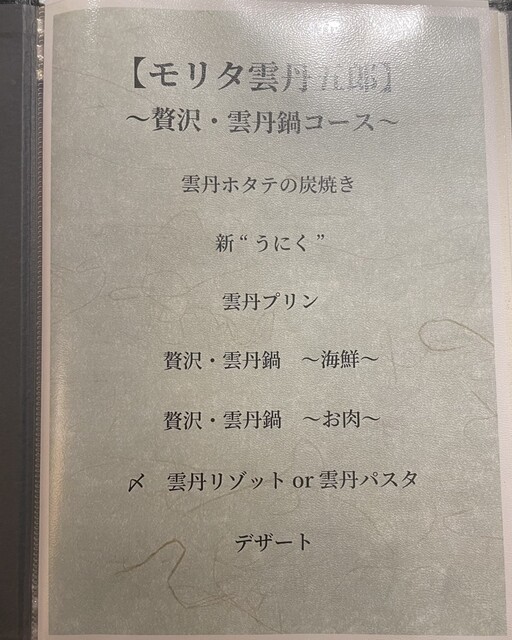 【モリタ雲丹五郎】
～贅沢・雲丹鍋コース～
雲丹ホタテの炭焼き
新“うにく”
雲丹プリン
贅沢・雲丹鍋　～海鮮～
贅沢・雲丹鍋　～お肉～
〆　雲丹リゾット or 雲丹パスタ
デザート